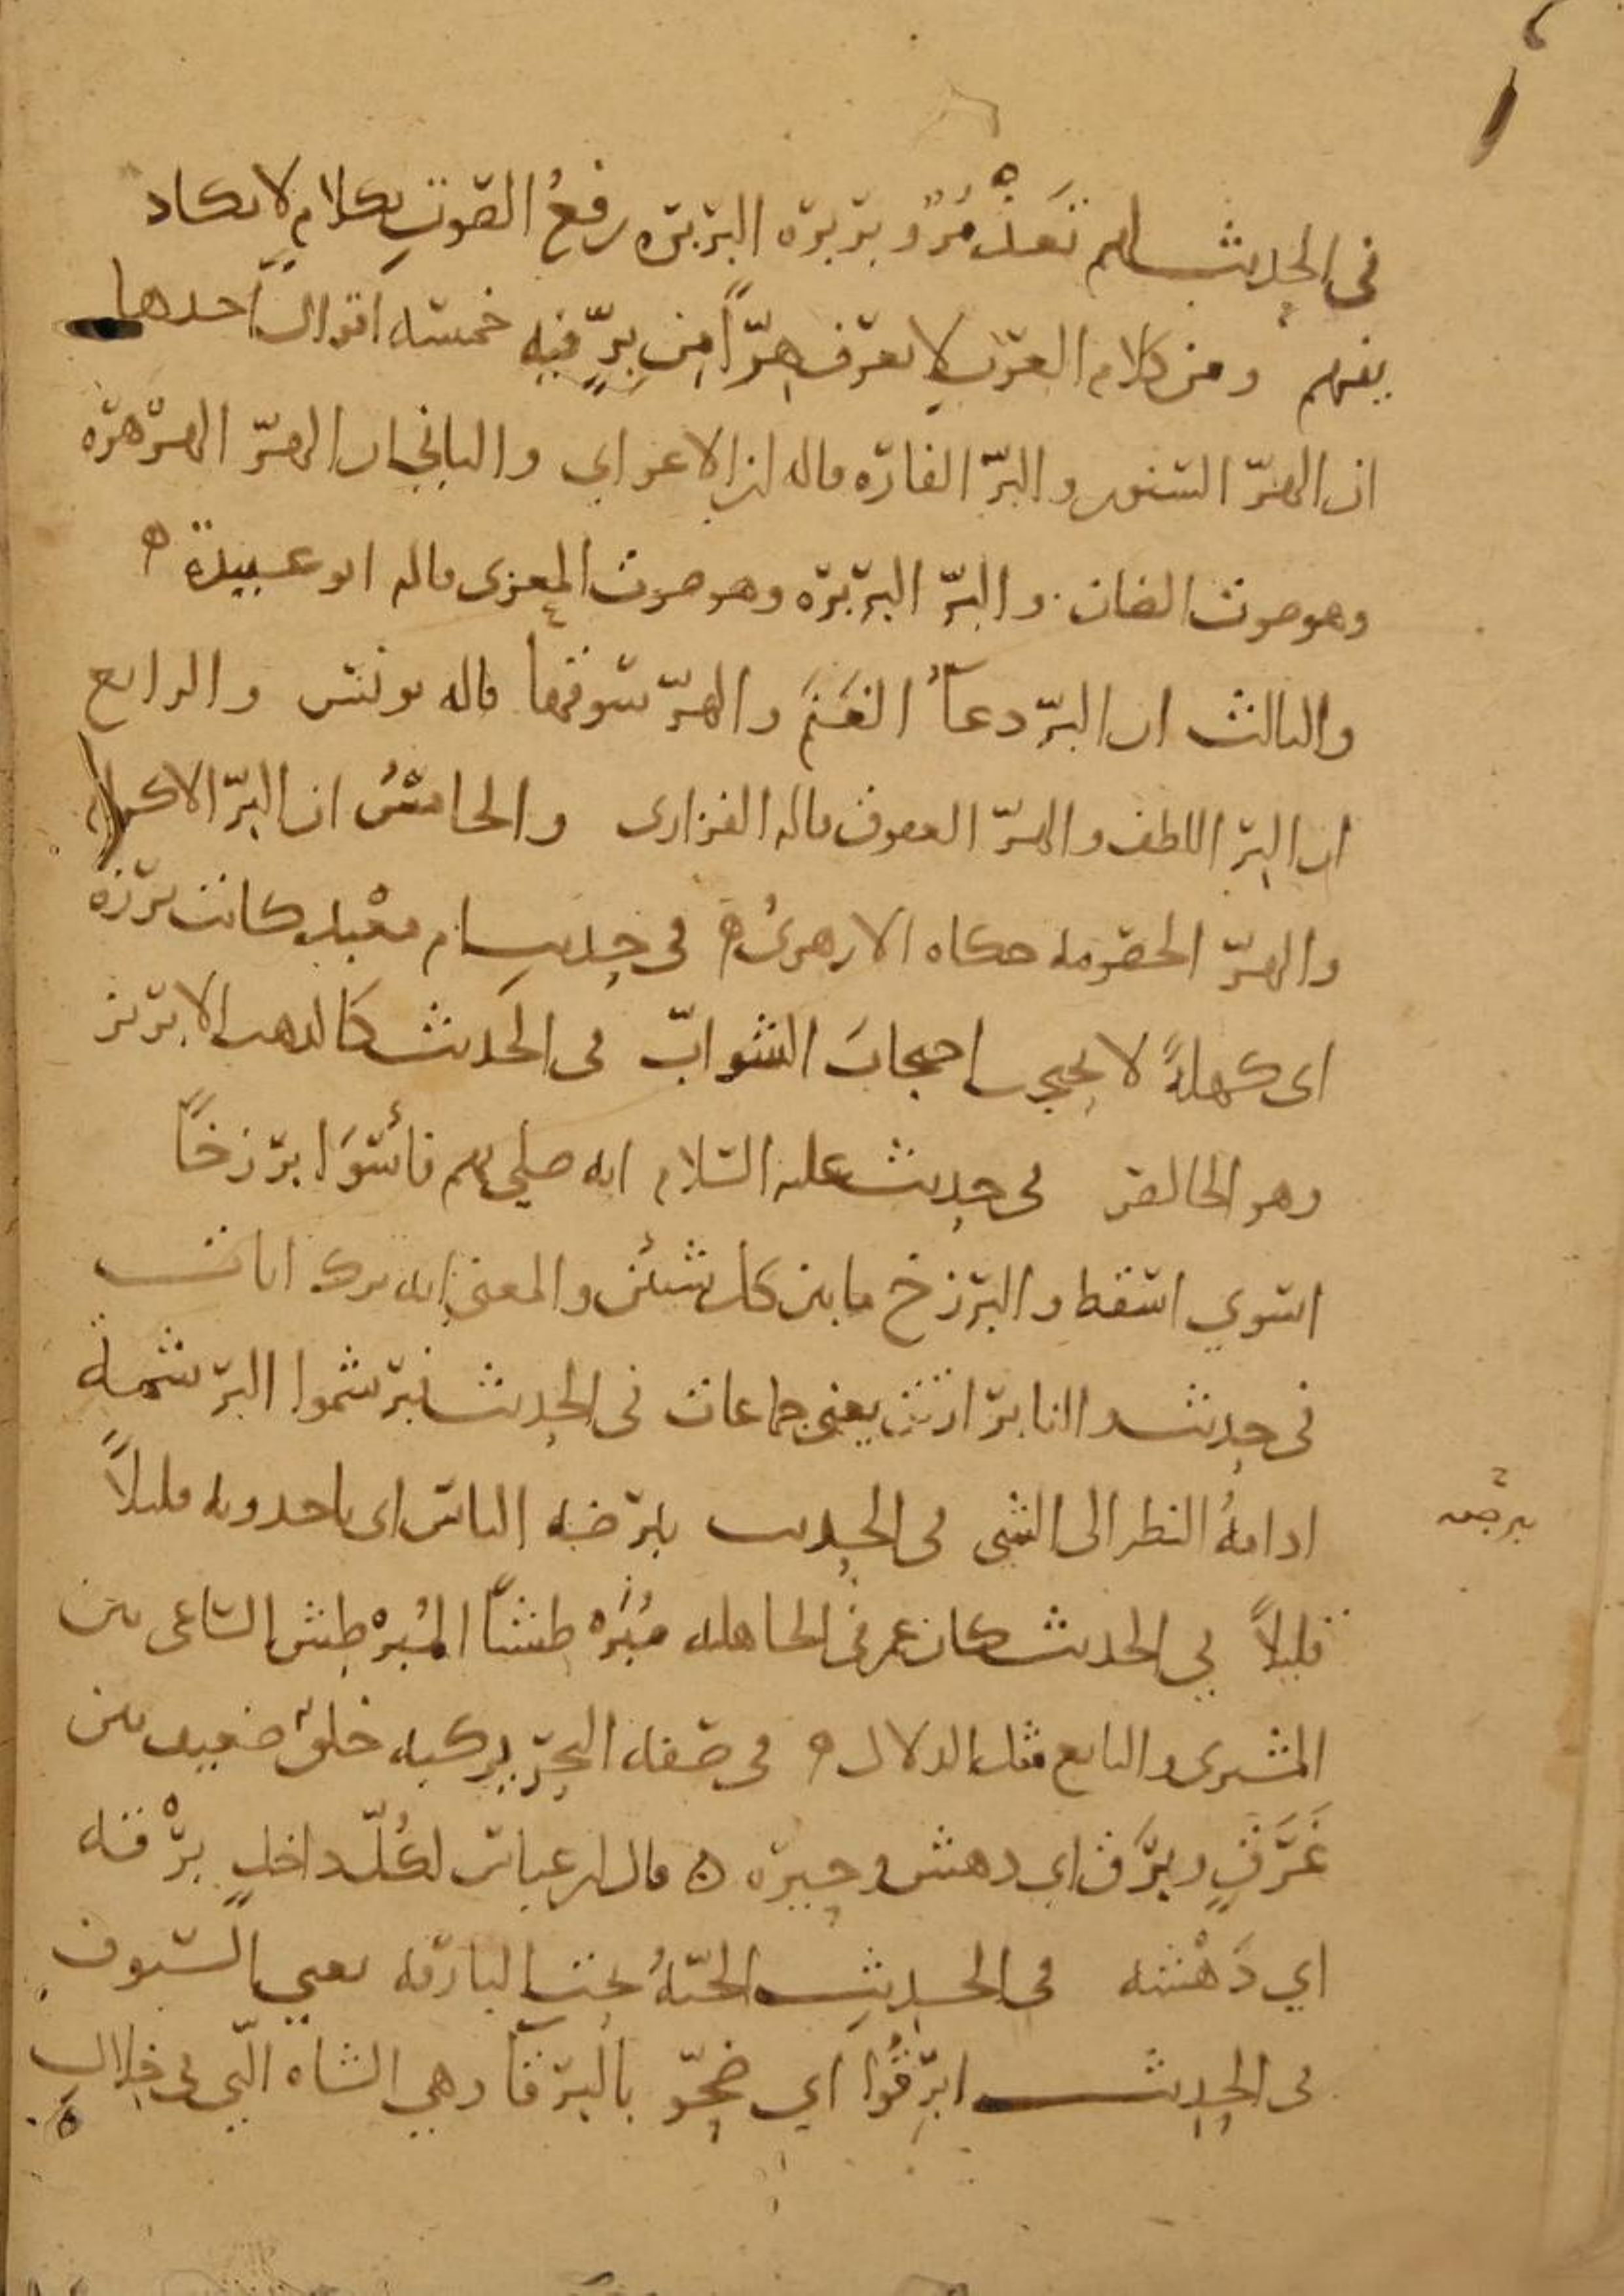 في الحديث لهم تغذمر وبربرة البربرة رفع الصوت بكلام لا يكاد
يفهم ومن كلام العرب لا يعرف هرا من بر فيه خمسة اقوال احدها
ان الهر السنور والبر الفارة قاله ابن الاعرابي والثاني ان الهر الهرهرة
وهو صوت الضان والبر البربرة وهو صوت المعزى قاله ابو عبيدة
والثالث ان البر دعاء الغنم والهر سوقها قاله يونس والرابع
ان البر اللطف والهر العقوق قاله الفزاري والخامس ان البر الاكرام
والهر الخصومة حكاه الازهري في حديث ام معبد كانت برزة
اى كهلة لا تحتجب احتجاب الشواب في الحديث كالذهب الابريز
وهو الخالص في حديث علي عليه السلام انه صلى بهم فأسوا برزخا
اسوي اسقط والبرزخ ما بين كل شيئين والمعنى انه ترك ايات
في حديث والنا برازيث يعني جماعات في الحديث فبرشموا البرشمة
ادامة النظر الى الشي في الحديث يتبرضه الناس اى ياخذونه قليلا
يبرضه
قليلا في الحديث كان عمر في الجاهلية مبرطشا المبرطش الساعي بين
المشترى والبايع مثل الدلال في صفة البحر يركبه خلق ضعيف بين
غرق وبرق اي دهش وحيرة قال ابن عباس لكل داخل برقة
اي دهشة في الحديث الجنة تحت البارقة يعني السيوف
في الحديث ابرقوا اي ضحو بالبرقا وهي الشاه التي في خلال